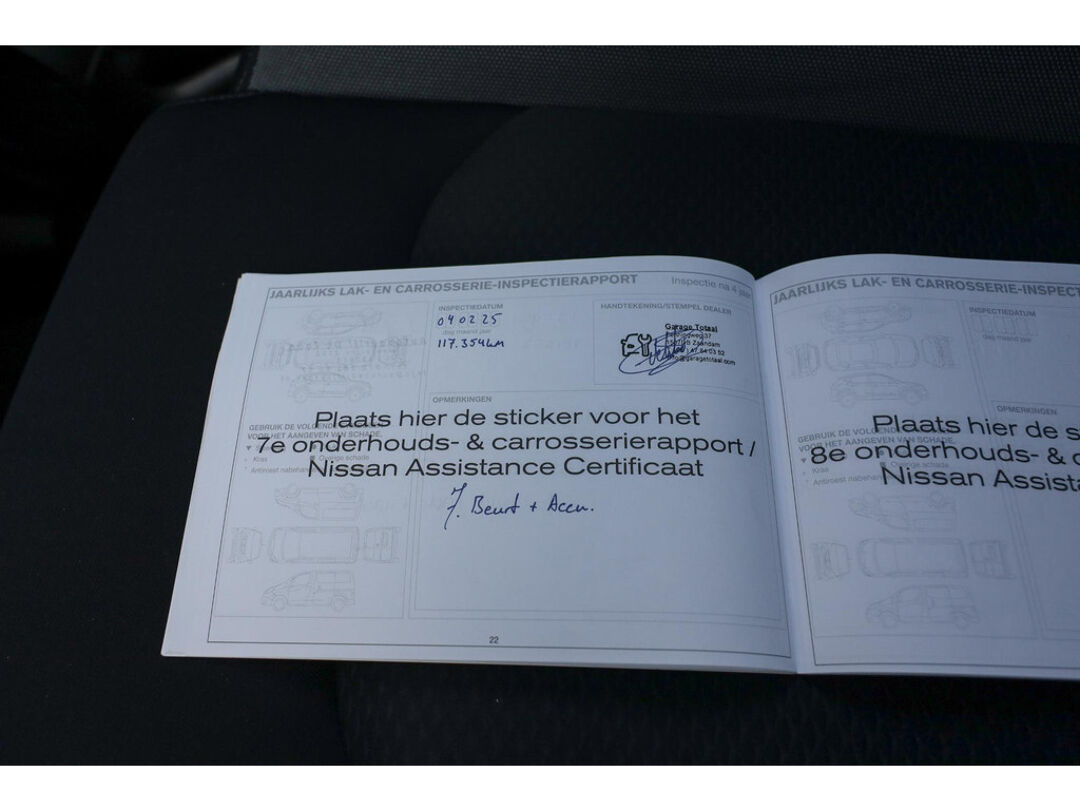 JAARLIJKS LAK- EN CARROSSERIE-INSPECTIERAPPORT
Inspectie na 4 jaar
INSPECTIEDATUM
04 02 25
dag maand jaar
117.354km
HANDTEKENING/STEMPEL DEALER
Garage Totaal
Zaandam
info@garagetotaal.com
OPMERKINGEN
GEBRUIK DE VOLGENDE
VOOR HET AANGEVEN VAN SCHADE.
Kras
Overige schade
Antiroest
Plaats hier de sticker voor het
7e onderhouds- & carrosserierapport /
Nissan Assistance Certificaat
7. Beurt + Accu.
22
JAARLIJKS LAK- EN CARROSSERIE-INSPECT
INSPECTIEDATUM
dag maand jaar
OPMERKINGEN
GEBRUIK DE VOLGENDE
VOOR HET AANGEVEN VAN SCHADE.
Kras
Overige schade
Antiroest
Plaats hier de s
8e onderhouds- & c
Nissan Assista